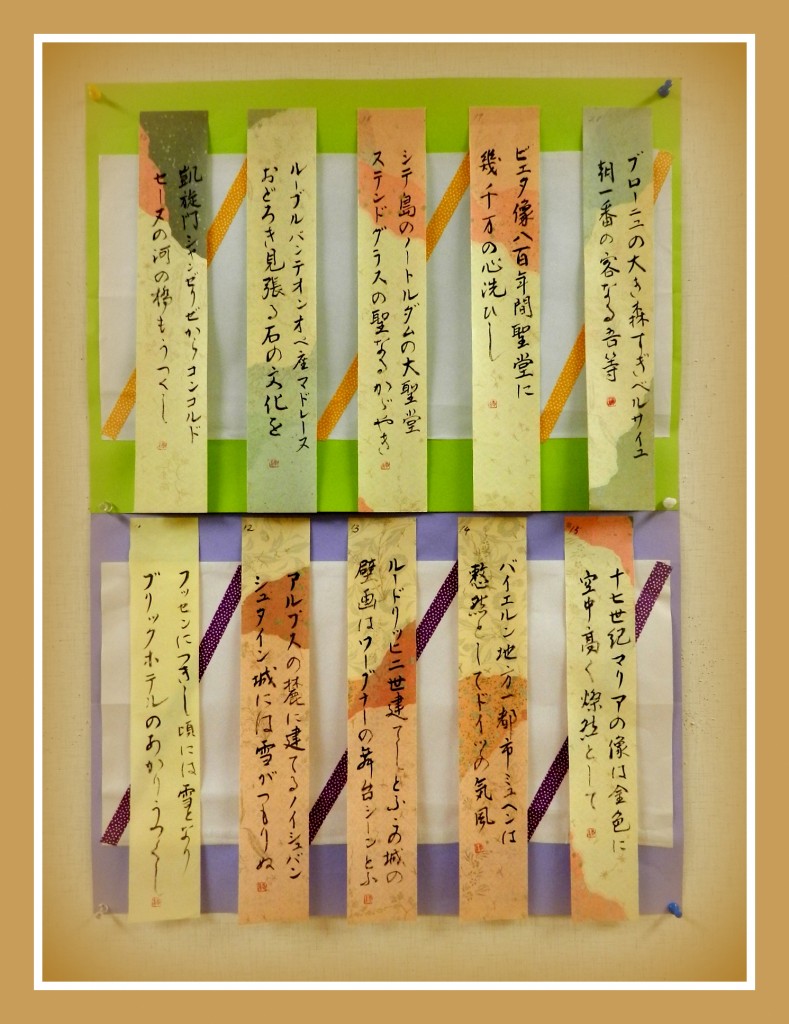 ブローニュの大き森すぎベルサイユ
朝一番の客なる吾等
17
ピエタ像八百年間聖堂に
幾千万の心洗ひし
18
シテ島のノートルダムの大聖堂
ステンドグラスの聖なるかゞやき
ルーブルパンテオンオペラ座マドレーヌ
おどろき見張る石の文化を
凱旋門シャンゼリゼからコンコルド
セーヌの河の橋もうつくし
15
十七世紀マリアの像は金色に
空中高く燦然として
14
バイエルン地方一都市ミュヘンは
憖然としてドイツの気風
13
ルードリッヒ二世建てしとふこの城の
壁画はワーグナーの舞台シーンとふ
12
アルプスの麓に建てるノイシュバン
シュタイン城には雪がつもりぬ
フッセンにつきし頃には雪となり
ブリックホテルのあかりうつくし